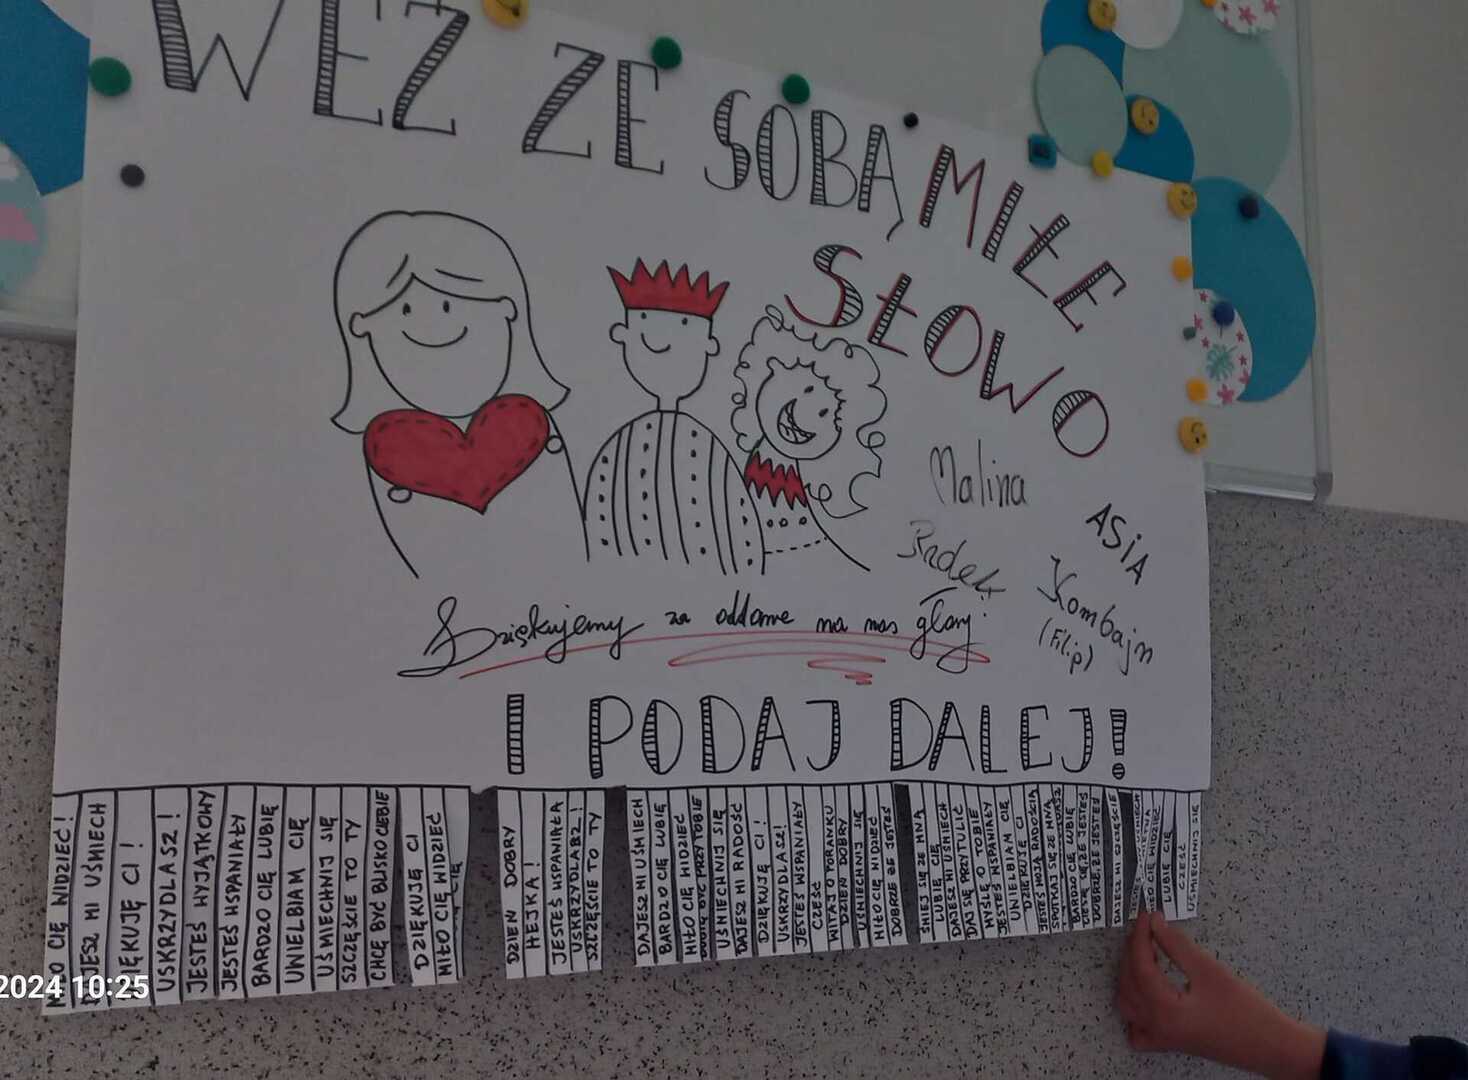 WEŹ ZE SOBĄ MIŁE
SŁOWO
Malina
ASiA
Radek
Kombajn
(Filip)
Dziękujemy za oddane na nas głosy.
I PODAJ DALEJ!
MIŁO CIĘ WIDZIEĆ!
DAJESZ MI UŚMIECH
DZIĘKUJĘ CI!
USKRZYDLASZ!
JESTEŚ WYJĄTKOWY
JESTEŚ WSPANIAŁY
BARDZO CIĘ LUBIĘ
UWIELBIAM CIĘ
UŚMIECHNIJ SIĘ
SZCZĘŚCIE TO TY
CHCĘ BYĆ BLISKO CIEBIE
DZIĘKUJĘ CI
MIŁO CIĘ WIDZIEĆ
DZIEŃ DOBRY
HEJKA!
JESTEŚ WSPANIAŁA
USKRZYDLASZ!
SZCZĘŚCIE TO TY
DAJESZ MI UŚMIECH
BARDZO CIĘ LUBIĘ
MIŁO CIĘ WIDZIEĆ
DOBRZE BYĆ PRZY TOBIE
UŚMIECHNIJ SIĘ
DAJESZ MI RADOŚĆ
DZIĘKUJĘ CI!
USKRZYDLASZ!
JESTEŚ WSPANIAŁY
CZEŚĆ
WITAJ O PORANKU
DZIEŃ DOBRY
UŚMIECHNIJ SIĘ
MIŁO CIĘ WIDZIEĆ
DOBRZE ŻE JESTEŚ
ŚMIEJ SIĘ ZE MNĄ
LUBIĘ CIĘ
DAJESZ MI UŚMIECH
DAJ SIĘ PRZYTULIĆ
MYŚLĘ O TOBIE
JESTEŚ WSPANIAŁY
UWIELBIAM CIĘ
DZIĘKUJĘ CI
JESTEŚ MOJĄ RADOŚCIĄ
SPOTKAJ SIĘ ZE MNĄ
BARDZO CIĘ LUBIĘ
CIESZĘ SIĘ, ŻE JESTEŚ
DOBRZE, ŻE JESTEŚ
DAJESZ MI SZCZĘŚCIE
MIŁO CIĘ WIDZIEĆ
LUBIĘ CIĘ
CZEŚĆ
UŚMIECHNIJ SIĘ
2024 10:25